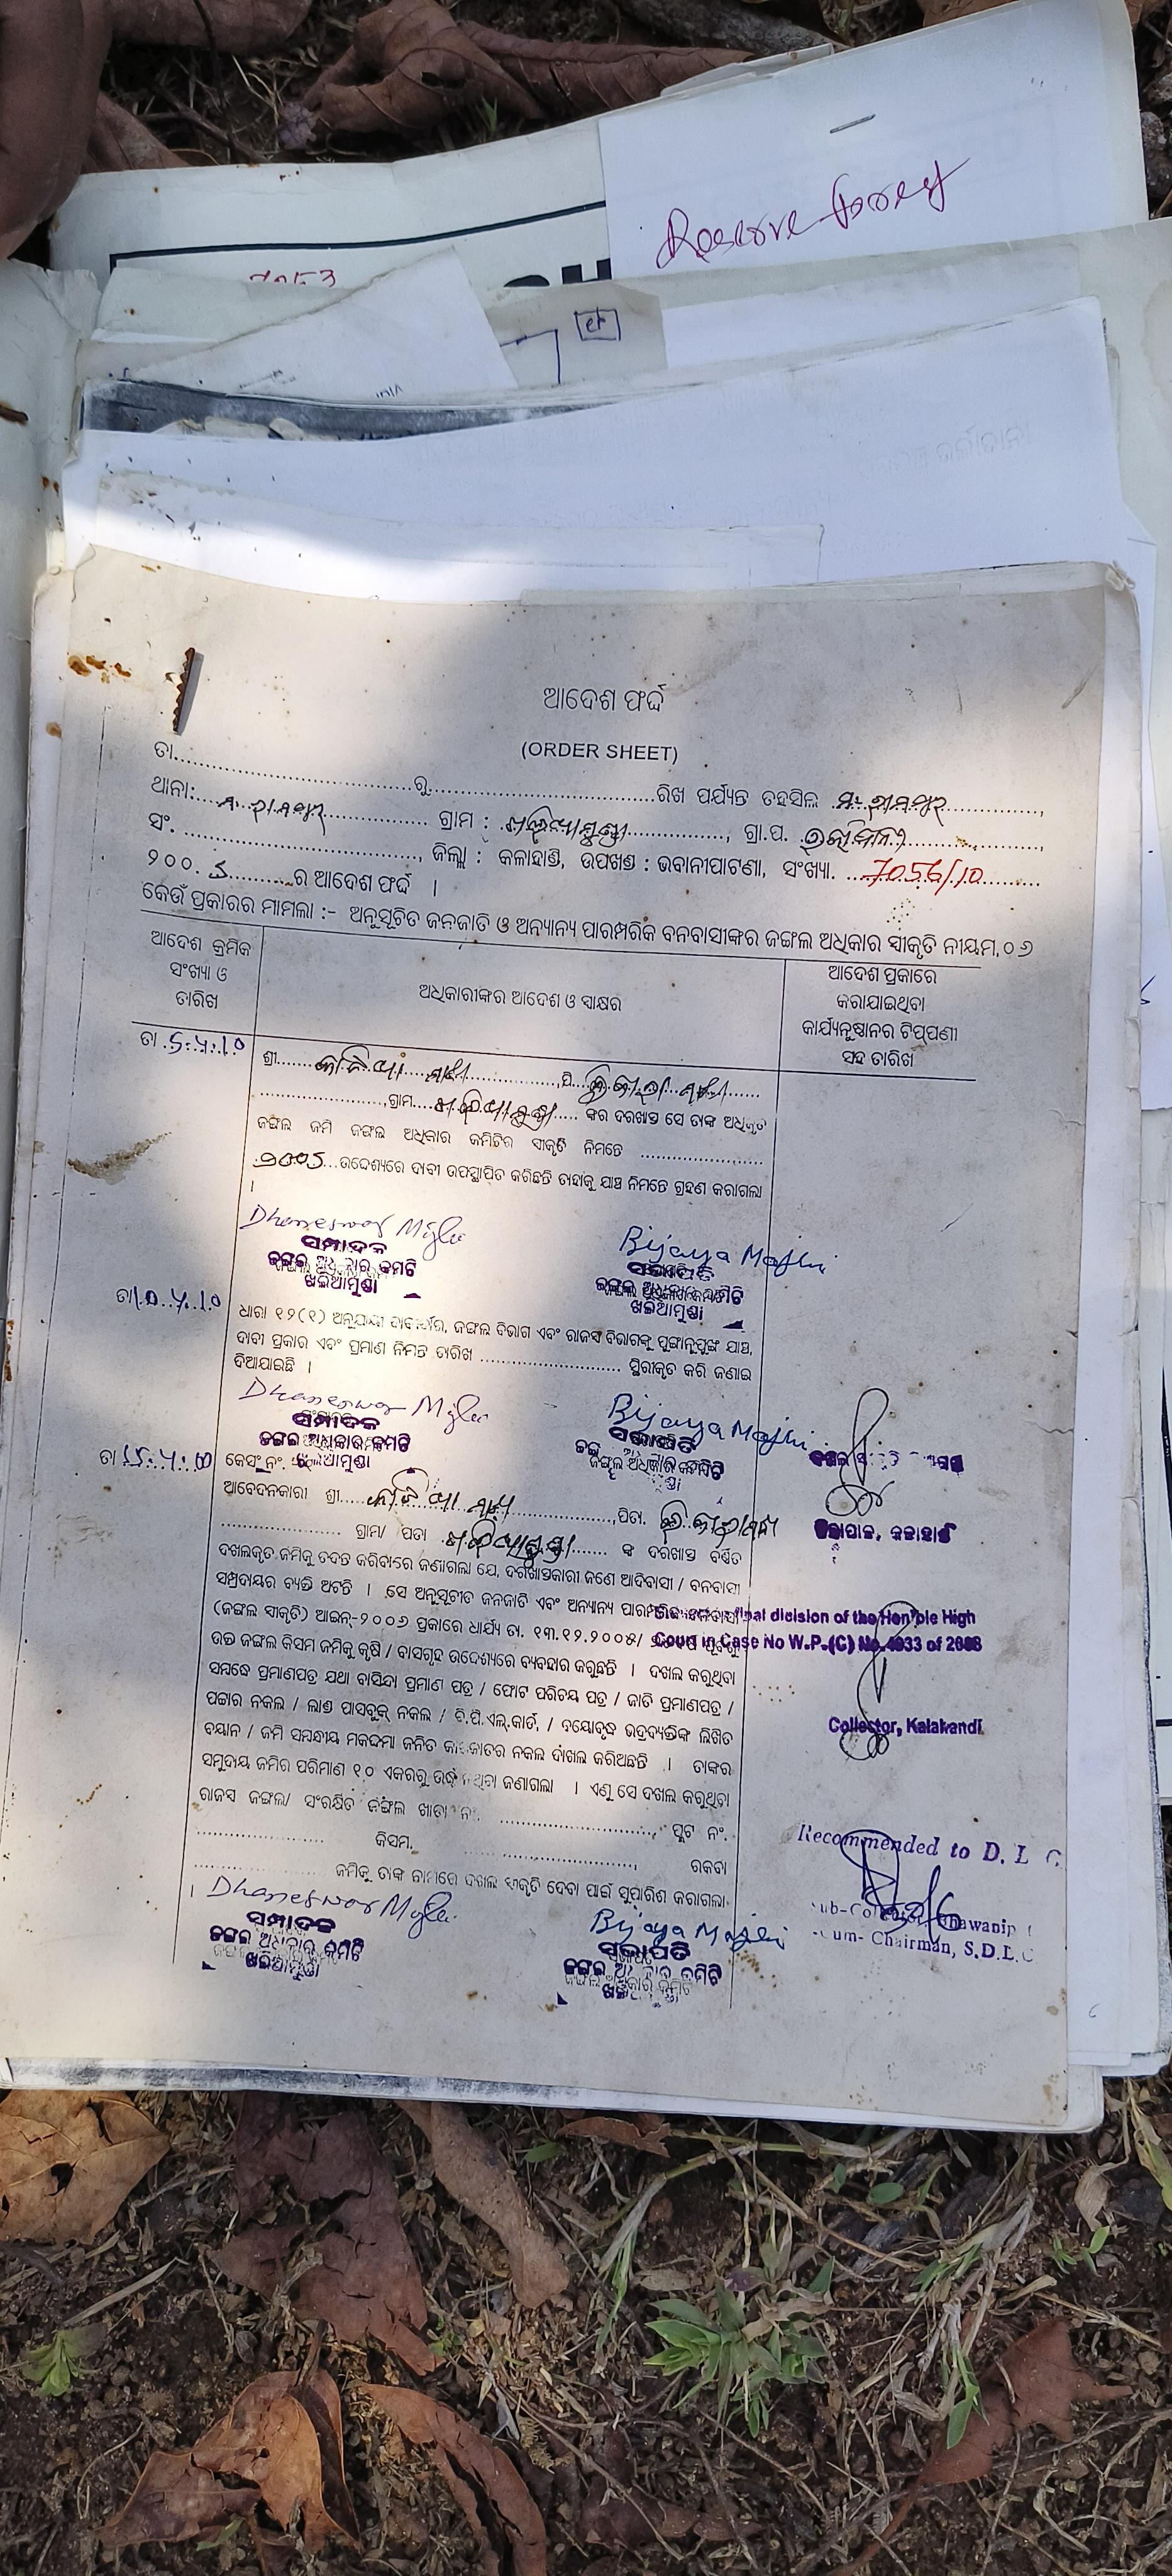 Reserve Forest
ଆଦେଶ ଫର୍ଦ୍ଦ
(ORDER SHEET)
ତା..........ରୁ..........ରିଖ ପର୍ଯ୍ୟନ୍ତ ତହସିଲ ମ. ରାମପୁର
ଥାନା: ମ. ରାମପୁର ଗ୍ରାମ : ଖଲିଆମୁଣ୍ଡା, ଗ୍ରା.ପ.
ସଂ. .........., ଜିଲ୍ଲା : କଳାହାଣ୍ଡି, ଉପଖଣ୍ଡ : ଭବାନୀପାଟଣା, ସଂଖ୍ୟା. 7056/10
୨୦୦.........ର ଆଦେଶ ଫର୍ଦ୍ଦ ।
କେଉଁ ପ୍ରକାରର ମାମଲା :- ଅନୁସୂଚିତ ଜନଜାତି ଓ ଅନ୍ୟାନ୍ୟ ପାରମ୍ପରିକ ବନବାସୀଙ୍କର ଜଙ୍ଗଲ ଅଧିକାର ସ୍ୱୀକୃତି ନୀୟମ,୦୬
ଆଦେଶ କ୍ରମିକ
ସଂଖ୍ୟା ଓ
ତାରିଖ
ଅଧିକାରୀଙ୍କର ଆଦେଶ ଓ ସାକ୍ଷର
ଆଦେଶ ପ୍ରକାରେ
କରାଯାଇଥିବା
କାର୍ଯ୍ୟାନୁଷ୍ଠାନର ଟିପ୍ପଣୀ
ସହ ତାରିଖ
ତା
ଶ୍ରୀ.......... ମାଝୀ ..........,ପି.......... ମାଝୀ
..........,ଗ୍ରାମ.... ଖଲିଆମୁଣ୍ଡା .... ଙ୍କର ଦରଖାସ୍ତ ସେ ତାଙ୍କ ଅଧିକୃତ
ଜଙ୍ଗଲ ଜମି ଜଙ୍ଗଲ ଅଧିକାର କମିଟିର ସ୍ୱୀକୃତି ନିମନ୍ତେ ..........
୨୦୦୫...ଉଦ୍ଦେଶ୍ୟରେ ଦାବୀ ଉପସ୍ଥାପିତ କରିଛନ୍ତି ତାହାକୁ ଯାଞ୍ଚ ନିମନ୍ତେ ଗ୍ରହଣ କରାଗଲା
।
Dhaneswar Majhi
Bijaya Majhi
ସମ୍ପାଦକ
ଜଙ୍ଗଲ ଅଧିକାର କମିଟି
ଖଲିଆମୁଣ୍ଡା
ସଭାପତି
ଜଙ୍ଗଲ ଅଧିକାର କମିଟି
ଖଲିଆମୁଣ୍ଡା
ତା
ଧାରା ୧୨(୧) ଅନୁଯାୟୀ ଦାବୀଦାର, ଜଙ୍ଗଲ ବିଭାଗ ଏବଂ ରାଜସ୍ୱ ବିଭାଗଙ୍କୁ ପୁଙ୍ଖାନୁପୁଙ୍ଖ ଯାଞ୍ଚ,
ଦାବୀ ପ୍ରକାର ଏବଂ ପ୍ରମାଣ ନିମନ୍ତେ ତାରିଖ .......... ସ୍ଥିରୀକୃତ କରି ଜଣାଇ
ଦିଆଯାଇଛି ।
Dhaneswar Majhi
Bijaya Majhi
ସମ୍ପାଦକ
ଜଙ୍ଗଲ ଅଧିକାର କମିଟି
ଖଲିଆମୁଣ୍ଡା
ସଭାପତି
ଜଙ୍ଗଲ ଅଧିକାର କମିଟି
ତା
କେସ୍ ନଂ.
ଆବେଦନକାରୀ ଶ୍ରୀ.......... ମାଝୀ ..........,ପିତା.
.......... ଗ୍ରାମ/ ପଡା ଖଲିଆମୁଣ୍ଡା ....... ଙ୍କ ଦରଖାସ୍ତ ବର୍ଣ୍ଣିତ
ଦଖଲକୃତ ଜମିକୁ ତଦନ୍ତ କରିବାରେ ଜଣାଗଲା ଯେ, ଦରଖାସ୍ତକାରୀ ଜଣେ ଆଦିବାସୀ / ବନବାସୀ
ସମ୍ପ୍ରଦାୟର ବ୍ୟକ୍ତି ଅଟନ୍ତି । ସେ ଅନୁସୂଚୀତ ଜନଜାତି ଏବଂ ଅନ୍ୟାନ୍ୟ ପାରମ୍ପରିକ ବନବାସୀ
(ଜଙ୍ଗଲ ସ୍ୱୀକୃତି) ଆଇନ୍-୨୦୦୬ ପ୍ରକାରେ ଧାର୍ଯ୍ୟ ତା. ୧୩.୧୨.୨୦୦୫/
ଉକ୍ତ ଜଙ୍ଗଲ କିସମ ଜମିକୁ କୃଷି / ବାସଗୃହ ଉଦ୍ଦେଶ୍ୟରେ ବ୍ୟବହାର କରୁଛନ୍ତି । ଦଖଲ କରୁଥିବା
ସମ୍ବନ୍ଧେ ପ୍ରମାଣପତ୍ର ଯଥା ବାସିନ୍ଦା ପ୍ରମାଣ ପତ୍ର / ଫୋଟ ପରିଚୟ ପତ୍ର / ଜାତି ପ୍ରମାଣପତ୍ର /
ପଟ୍ଟାର ନକଲ / ଲାଣ୍ଡ ପାସବୁକ୍ ନକଲ / ବି.ପି.ଏଲ୍.କାର୍ଡ, / ବୟୋବୃଦ୍ଧ ଭଦ୍ରବ୍ୟକ୍ତିଙ୍କ ଲିଖିତ
ବୟାନ / ଜମି ସମ୍ବନ୍ଧୀୟ ମକଦ୍ଦମା ଜନିତ କାଗଜାତର ନକଲ ଦାଖଲ କରିଅଛନ୍ତି । ତାଙ୍କର
ସମୁଦାୟ ଜମିର ପରିମାଣ ୧୦ ଏକରରୁ ଉର୍ଦ୍ଧ ନଥିବା ଜଣାଗଲା । ଏଣୁ ସେ ଦଖଲ କରୁଥିବା
ରାଜସ୍ୱ ଜଙ୍ଗଲ/ ସଂରକ୍ଷିତ ଜଙ୍ଗଲ ଖାତା ନଂ. .........., ପ୍ଲଟ ନଂ.
.......... କିସମ, .........., ରକବା
.......... ଜମିକୁ ତାଙ୍କ ନାମରେ ଦଖଲ ସ୍ୱୀକୃତି ଦେବା ପାଇଁ ସୁପାରିଶ କରାଗଲା
।
Dhaneswar Majhi
Bijaya Majhi
ସମ୍ପାଦକ
ଜଙ୍ଗଲ ଅଧିକାର କମିଟି
ଖଲିଆମୁଣ୍ଡା
ସଭାପତି
ଜଙ୍ଗଲ ଅଧିକାର କମିଟି
ଜିଲ୍ଲାପାଳ, କଳାହାଣ୍ଡି
final division of the Hon'ble High
Court in Case No W.P.(C) No.4933 of 2008
Collector, Kalahandi
Recommended to D. L. C.
Sub-Collector, Bhawanip
-cum- Chairman, S.D.L.C